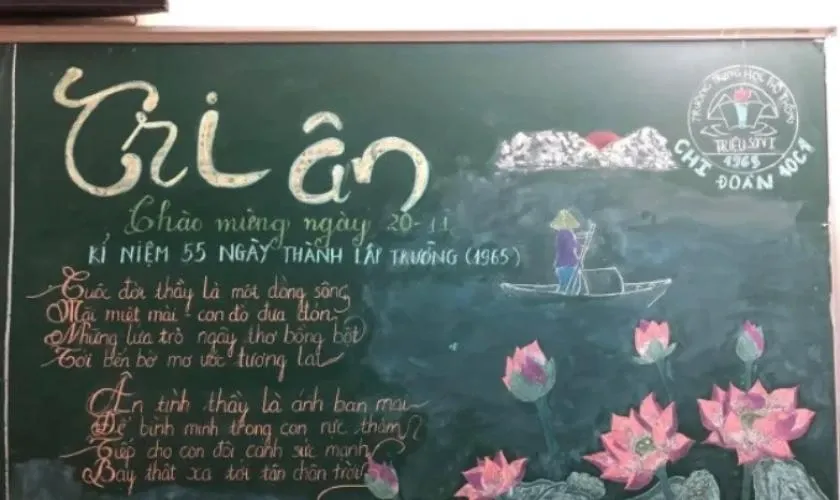 Tri ân
Chào mừng ngày 20-11
KỈ NIỆM 55 NGÀY THÀNH LẬP TRƯỜNG (1965)
Cuộc đời thầy là một dòng sông
Mải miệt mài con đò đưa đón
Những lứa trò ngây thơ bồng bột
Tới bến bờ mơ ước tương lai
Ân tình thầy là ánh ban mai
Để bình minh trong con rực thắm
Tiếp cho con đôi cánh sức mạnh
Bay thật xa tới tận chân trời
TRƯỜNG TRUNG HỌC PHỔ THÔNG
TRIỆU SƠN I
1965
CHI ĐOÀN 10C1